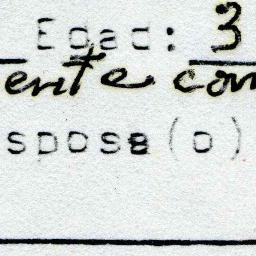 Edad: 3
ente con
sposa(o)